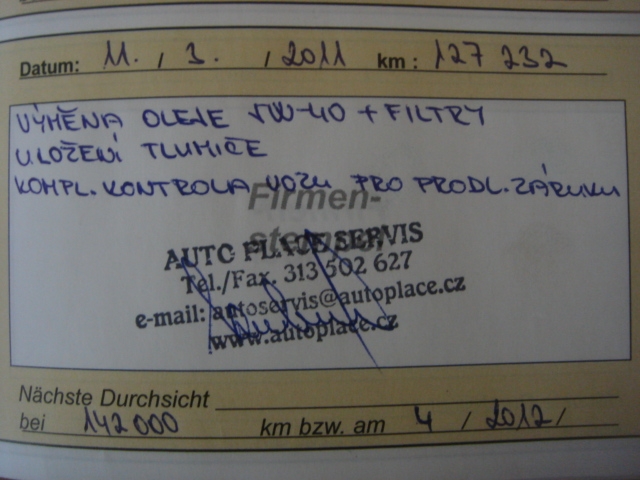 Datum: 11. / 3. / 2011 km: 127 232
VÝMĚNA OLEJE 5W-40 + FILTRY
ULOŽENÍ TLUMIČE
KOMPL. KONTROLA VOZU PRO PRODL. ZÁRUKU
Firmen-
stempel
AUTO PLACE SERVIS
Tel./Fax. 313 502 627
e-mail: autoservis@autoplace.cz
www.autoplace.cz
Nächste Durchsicht
bei 142 000 km bzw. am 4 / 2012 /